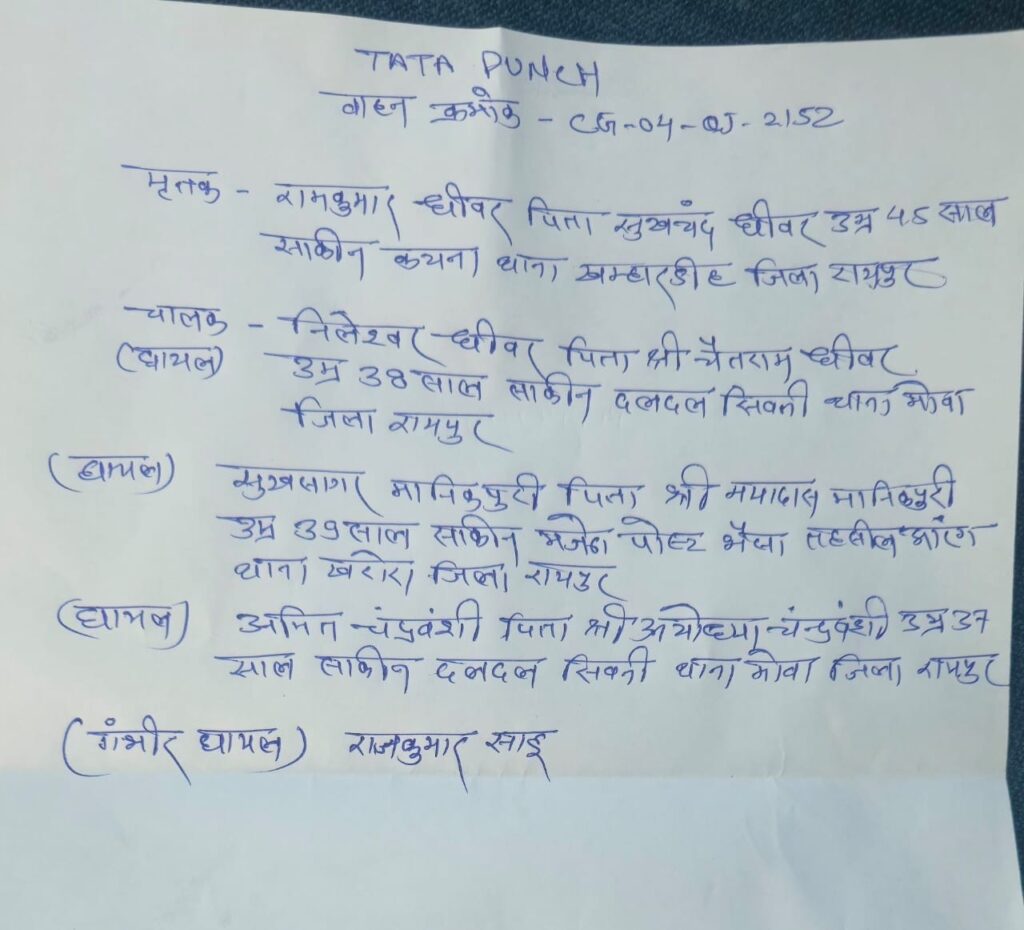 TATA PUNCH
वाहन क्रमांक - CG-04-QJ-2152
मृतक - रामकुमार धीवर पिता सुखचंद धीवर उम्र 45 साल
साकीन कचना थाना खम्हारडीह जिला रायपुर
चालक - निलेश्वर धीवर पिता श्री चैतराम धीवर
(घायल) उम्र 38 साल साकीन दलदल सिवनी थाना मोवा
जिला रायपुर
(घायल) सुखसागर मानिकपुरी पिता श्री मयादास मानिकपुरी
उम्र 39 साल साकीन पोस्ट भैंसा तहसील आरंग
थाना खरोरा जिला रायपुर
(घायल) अमित चंद्रवंशी पिता श्री अयोध्या चंन्द्रवंशी उम्र 37
साल साकीन दलदल सिवनी थाना मोवा जिला रायपुर
(गंभीर घायल) राजकुमार साहू